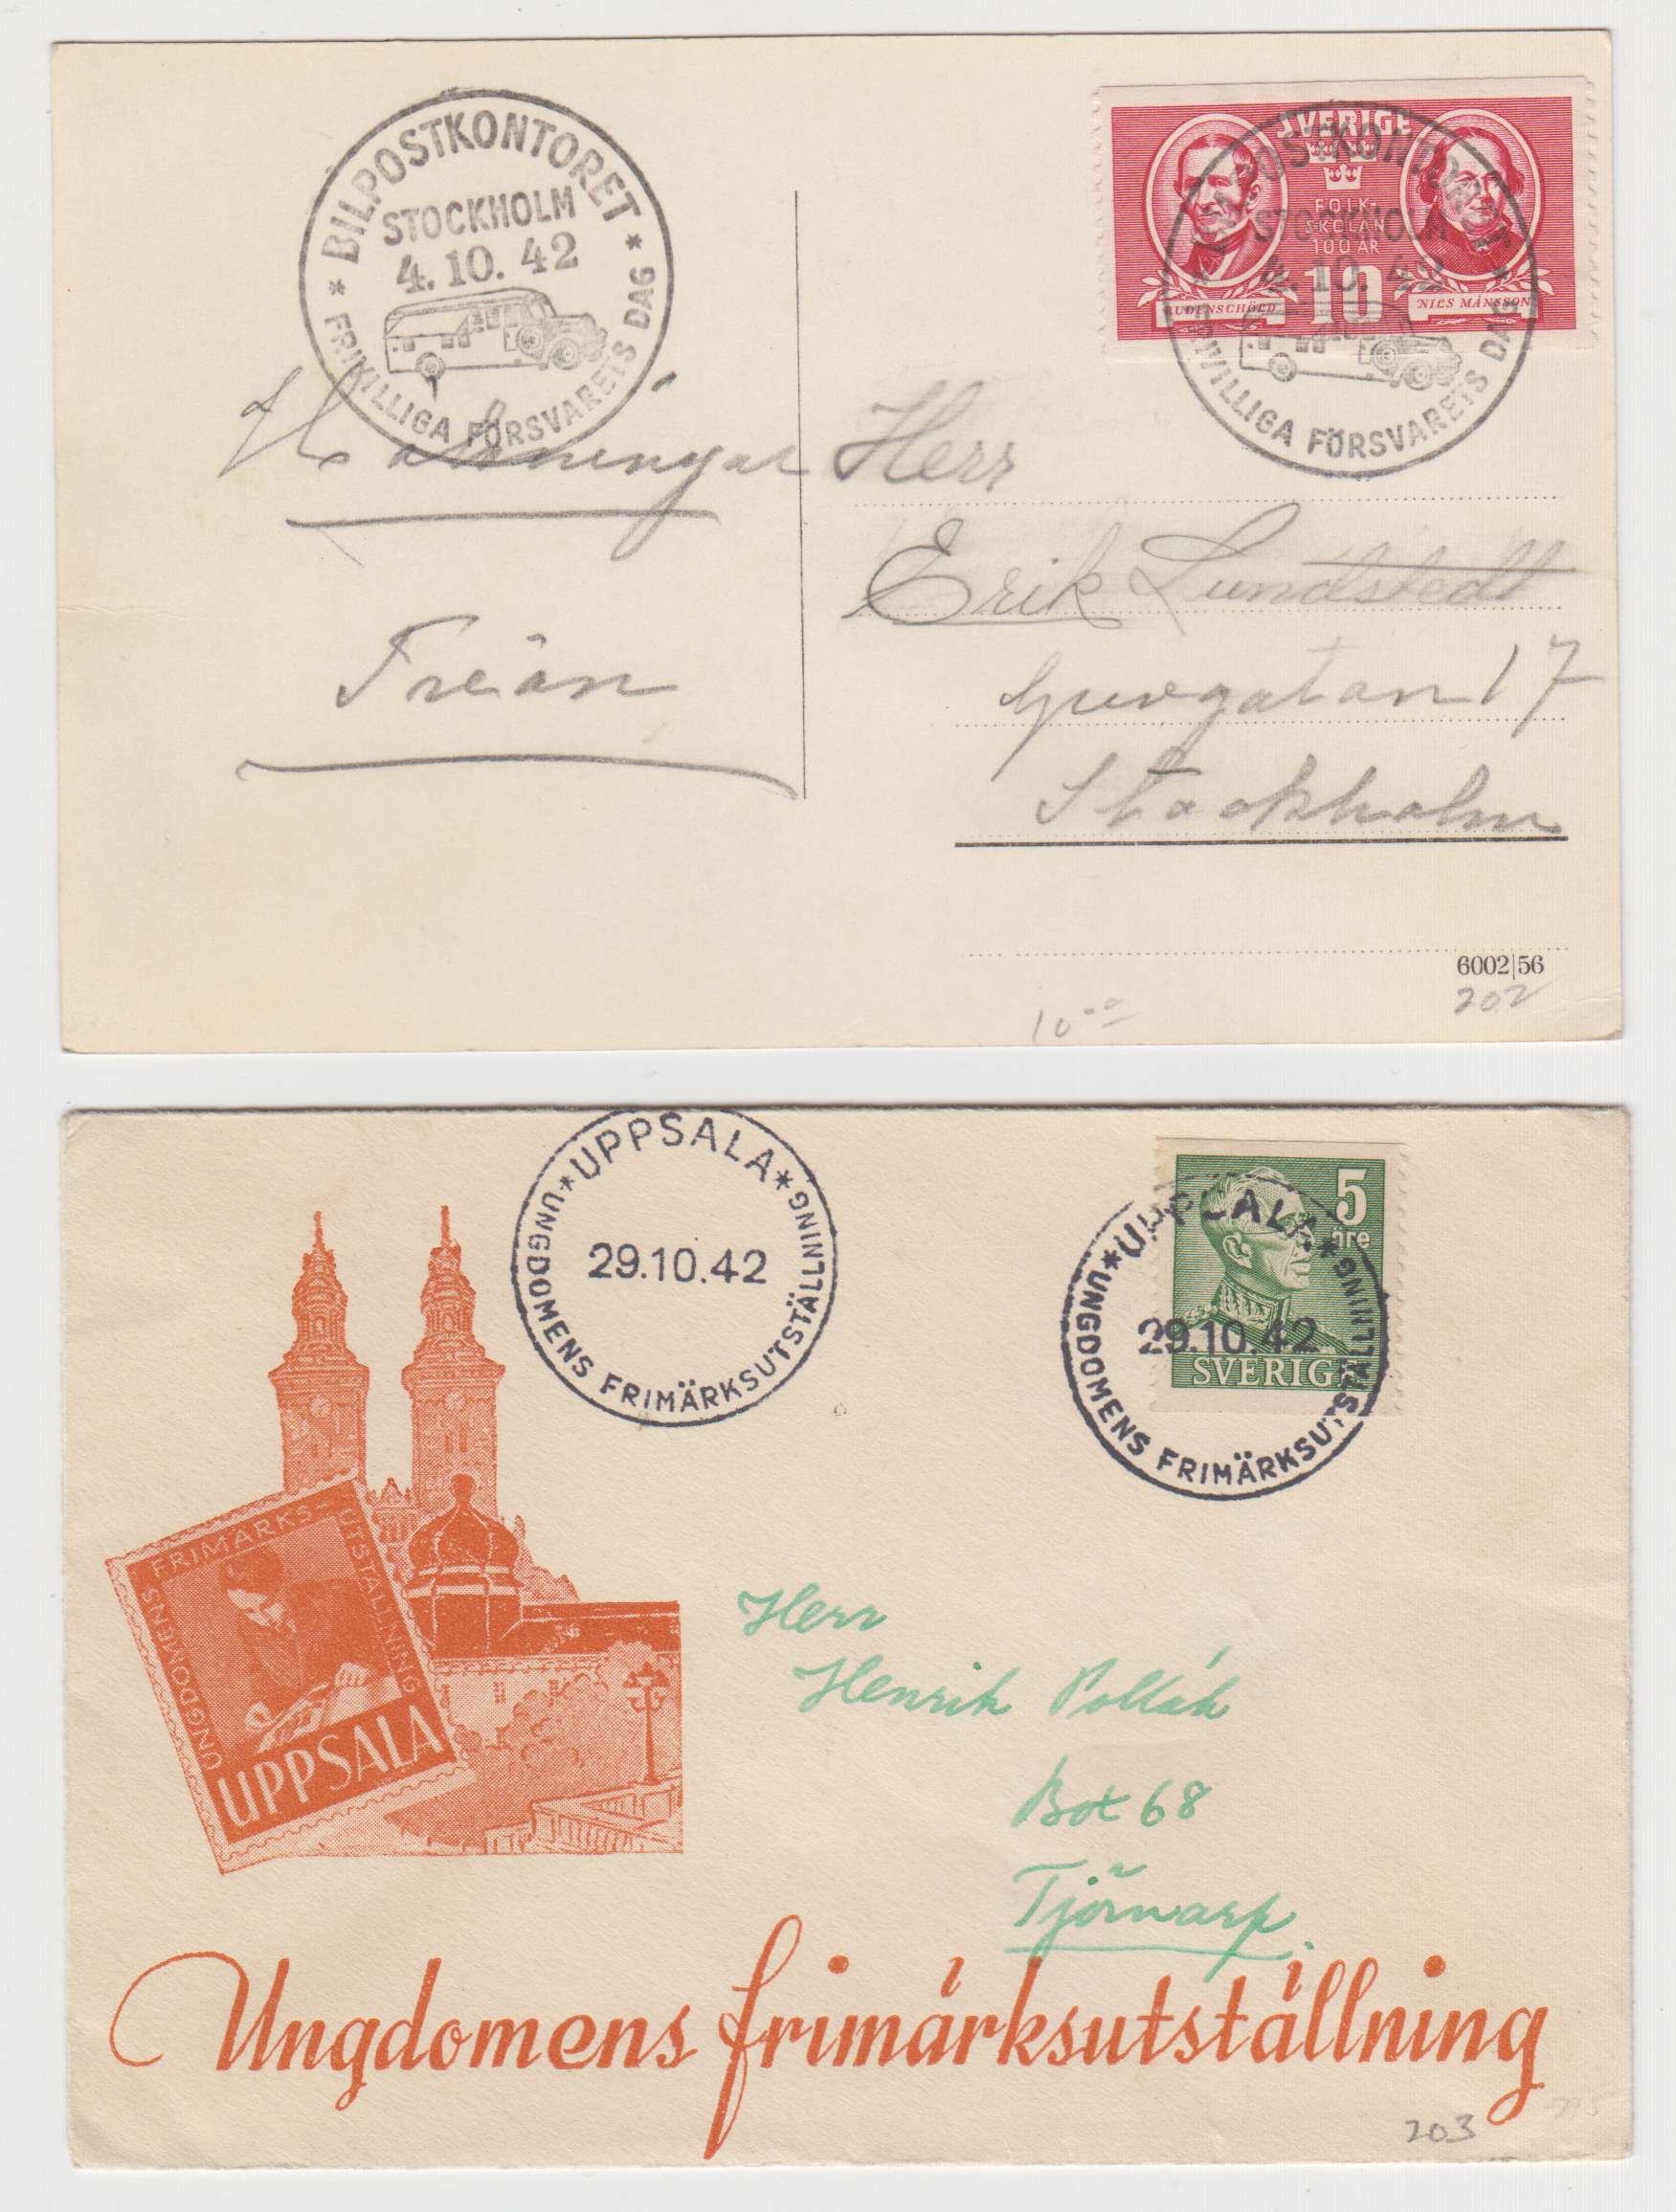 BILPOSTKONTORET
STOCKHOLM
4.10.42
* FRIVILLIGA FÖRSVARETS DAG *
SVERIGE
FOLK-
SKOLAN
100 ÅR
10
RUDENSCHÖLD
NILS MÅNSSON
POSTKONTORET
STOCKHOLM
4.10.42
FRIVILLIGA FÖRSVARETS DAG
Hälsningar
från
Herr
Erik Lundstedt
17
Stockholm
6002|56
202
10
*UPPSALA*
29.10.42
UNGDOMENS FRIMÄRKSUTSTÄLLNING
5
öre
SVERIGE
*UPPSALA*
29.10.42
UNGDOMENS FRIMÄRKSUTSTÄLLNING
UNGDOMENS FRIMÄRKS-UTSTÄLLNING
UPPSALA
Herr
Henrik Pollák
Box 68
Tjörnarp.
Ungdomens frimärksutställning
203